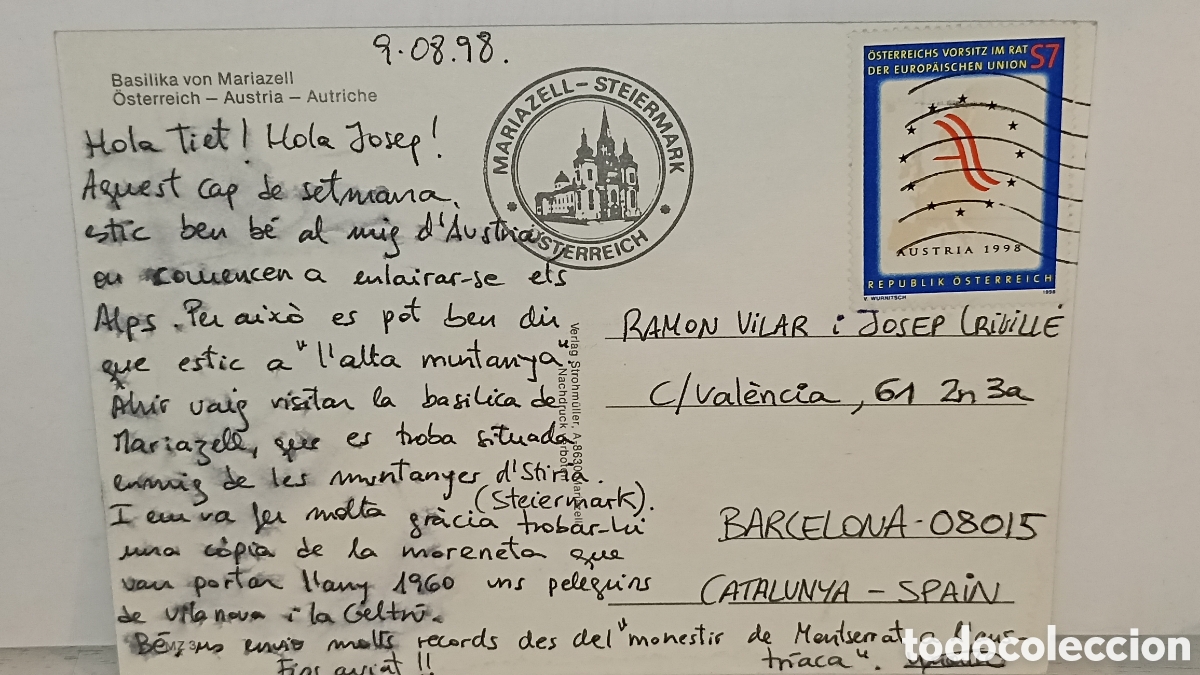 9.08.98.
Basilika von Mariazell
Österreich – Austria – Autriche
Hola Tiet! Hola Josep!
Aquest cap de setmana
estic ben bé al mig d'Austria
on comencen a enlairar-se els
Alps. Per això es pot ben dir
que estic a "l'alta muntanya".
Ahir vaig visitar la basilica de
Mariazell, que es troba situada
enmig de les muntanyes d'Stiria.
(Steiermark).
I em va fer molta gràcia trobar-hi
una còpia de la moreneta que
van portar l'any 1960 uns pelegrins
de Vilanova i la Geltrú.
Bé, us envio molts records des del "monestir de Montserrat
tríaca".
Fins aviat!!
MARIAZELL – STEIERMARK
ÖSTERREICH
ÖSTERREICHS VORSITZ IM RAT
DER EUROPÄISCHEN UNION
S7
AUSTRIA 1998
REPUBLIK ÖSTERREICH
V. WURNITSCH
1998
Verlag Strohmüller, A-8630 Mariazell
Nachdruck verboten
RAMON VILAR i JOSEP CRIVILLÉ
C/València, 61 2n 3a
BARCELONA - 08015
CATALUNYA – SPAIN
todocoleccion